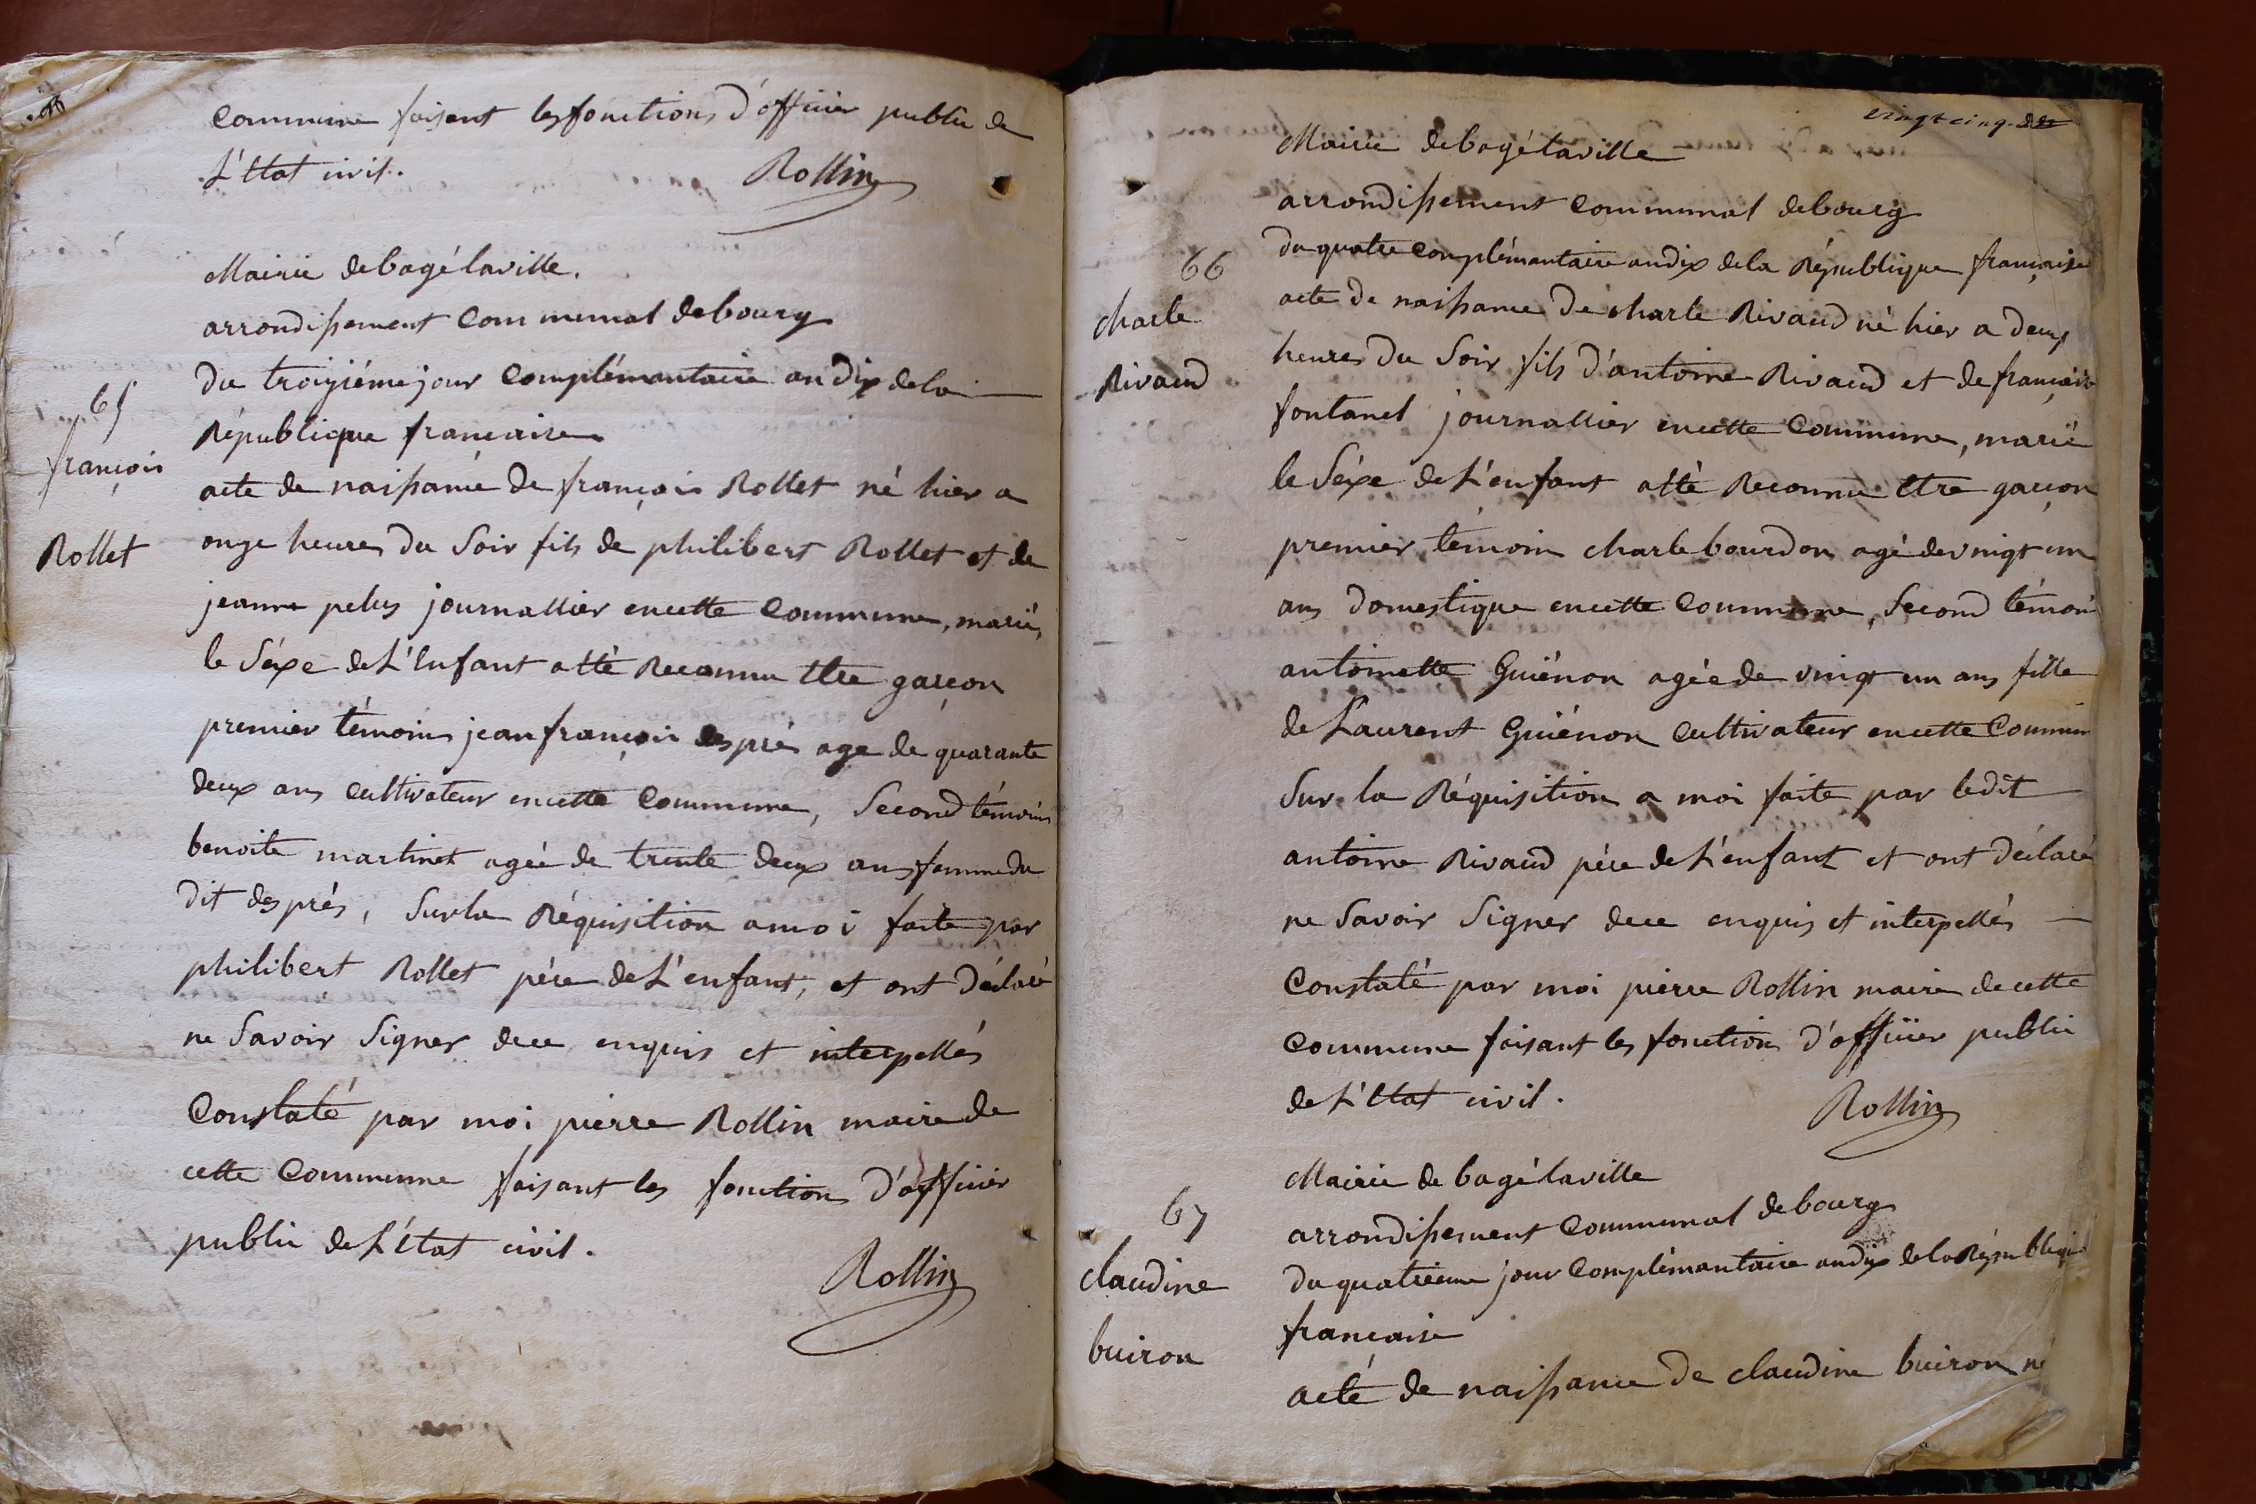 commune faisant les fonctions d'officier public de
L'Etat civil.
Rollin
Mairie de bagé la ville.
arrondissement communal de bourg
65
françois
Rollet
du troiziéme jour complémentaire an dix de la
République française
acte de naissance de françois Rollet né hier a
onze heures du Soir fils de philibert Rollet et de
jeanne pelus journallier en cette commune, marié,
le Séxe de L'enfant a été Reconnu etre garçon
premier témoins jean françois des prés age de quarante
deux ans cultivateur en cette commune, Second témoins
benoite martinet agée de trente deux ans femme du
dit des prés, Sur la Réquisition a moi faite par
philibert Rollet pére de L'enfant, et ont déclaré
ne Savoir Signer de ce enquis et interpellés
Constaté par moi pierre Rollin maire de
cette Commune faisant les fonction d'officier
public de L'état civil.
Rollin
vingt cinq
Mairie de bagé la ville
arrondissement communal de bourg
66
charle
Rivaud
du quatre complémantaire an dix de la République française
acte de naissance de charle Rivaud né hier a deux
heures du Soir fils d'antoine Rivaud et de françoise
fontanel journallier en cette commune, marié
le Séxe de L'enfant a été Reconnu etre garçon
premier témoin charle bourdon agé de vingt un
ans domestique en cette commune, Second témoin
antoinette Guiénon agée de vingt un ans fille
de Laurent Guiénon cultivateur en cette Commun
Sur la Réquisition a moi faite par ledit
antoine Rivaud pére de L'enfant et ont déclaré
ne Savoir Signer de ce enquis et interpellés
Constaté par moi pierre Rollin maire de cette
Commune faisant les fonction d'officier public
de L'etat civil.
Rollin
Mairie de bagé la ville
arrondissement communal de bourg
67
claudine
buiron
du quatrieme jour complémantaire an dix de la République
française
acté de naissance de claudine buiron né